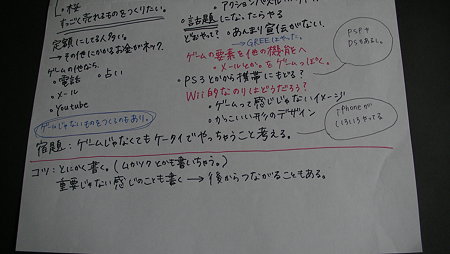 桜
すっごく売れるものをつくりたい。
定額にしてる人多い。
→その他にかかるお金がネック
ゲームの他なら、
電話
占い
メール
Youtube
ゲームじゃないものをつくるのもあり。
話題になったらやる
あんまり宣伝がない
→GREEはやった。
ゲームの要素を他の機能へ
→メールとか。をゲームっぽく。
PS3とかから携帯にもどる?
Wii的なのりはどうだろう?
ゲームって感じじゃないイメージ
かっこいい形のデザイン
PSPや
DSもあるし。
iPhoneが
いろいろやってる
宿題:ゲームじゃなくてもケータイでやっちゃうこと考える。
コツ:とにかく書く。(ムカツクとかも書いちゃう。)
重要じゃない感じのことも書く→後からつながることもある。